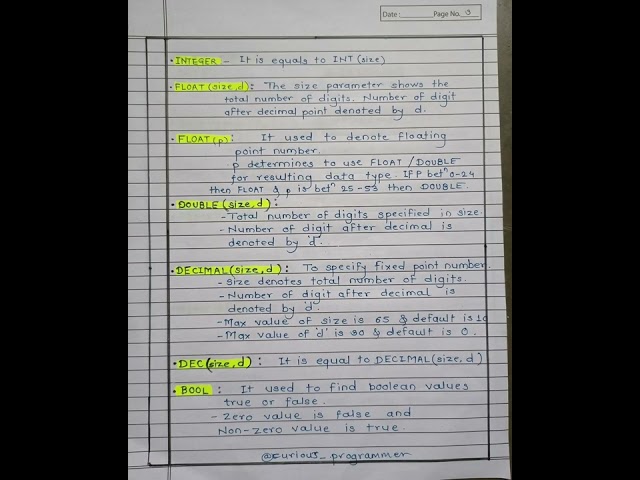 Date : Page No. 3
• INTEGER - It is equals to INT (size)
• FLOAT (size, d) : The size parameter shows the
total number of digits. Number of digit
after decimal point denoted by d.
• FLOAT (p) : It used to denote floating
point number.
p determines to use FLOAT / DOUBLE
for resulting data type. If P betⁿ 0-24
then FLOAT & p is betⁿ 25-53 then DOUBLE.
• DOUBLE (size, d) :
- Total number of digits specified in size.
- Number of digit after decimal is
denoted by 'd'.
• DECIMAL (size, d) : To specify fixed point number.
- Size denotes total number of digits.
- Number of digit after decimal is
denoted by 'd'.
- Max value of size is 65 & default is 10
- Max value of 'd' is 30 & default is 0.
• DEC (size, d) : It is equal to DECIMAL (size, d)
• BOOL : It used to find boolean values
true or false.
- Zero value is false and
Non-zero value is true.
@curious_programmer